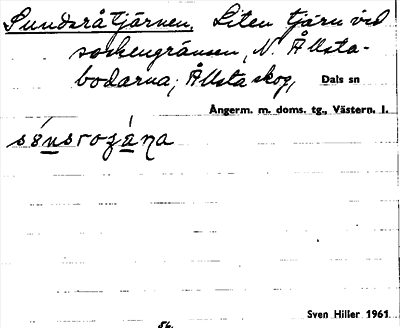 Sundsråtjärnen, Liten tjärn vid
sockengränsen, N. Ållsta-
bodarna, Ållsta skog,
Dals sn
Ångerm. m. doms. tg., Västern. l.
Sven Hiller 1961